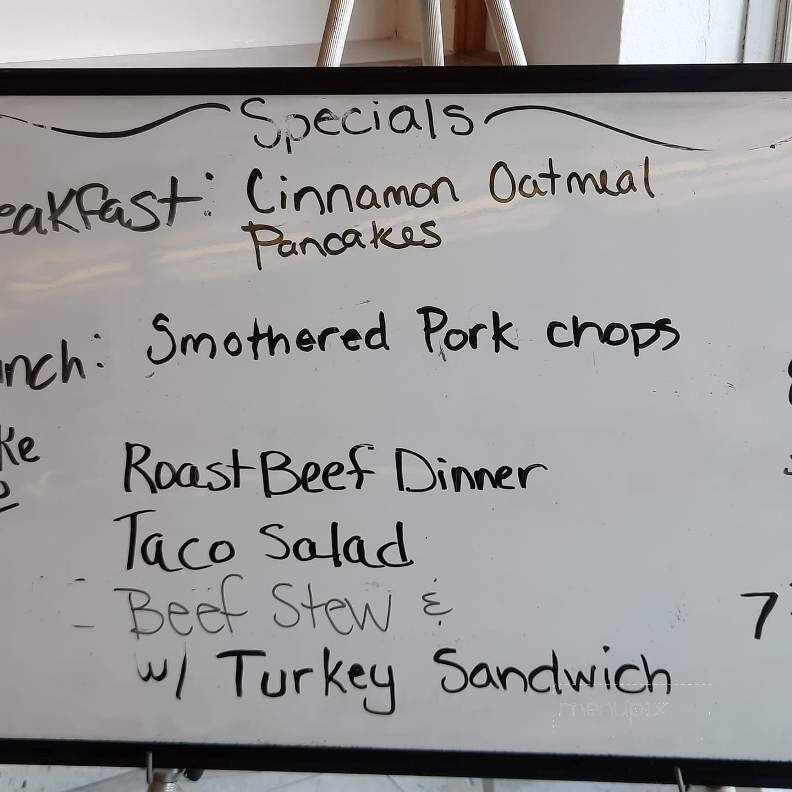 Specials
eakfast: Cinnamon Oatmeal
Pancakes
nch: Smothered Pork chops
ke
Roast Beef Dinner
Taco Salad
- Beef Stew & 7
w/ Turkey Sandwich
menupix